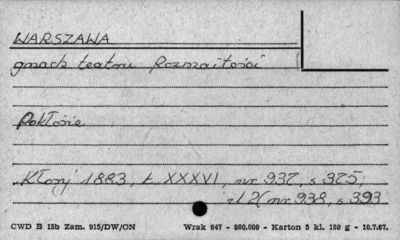 WARSZAWA
gmach teatru Rozmaitości
Pokłosie
Kłosy 1883, t. XXXVI, nr 937, s 375;
nr 938, s 393
CWD B 15b Zam. 915/DW/ON Wrak 647 - 980.000 - Karton 5 kl. 180 g - 10.7.67.